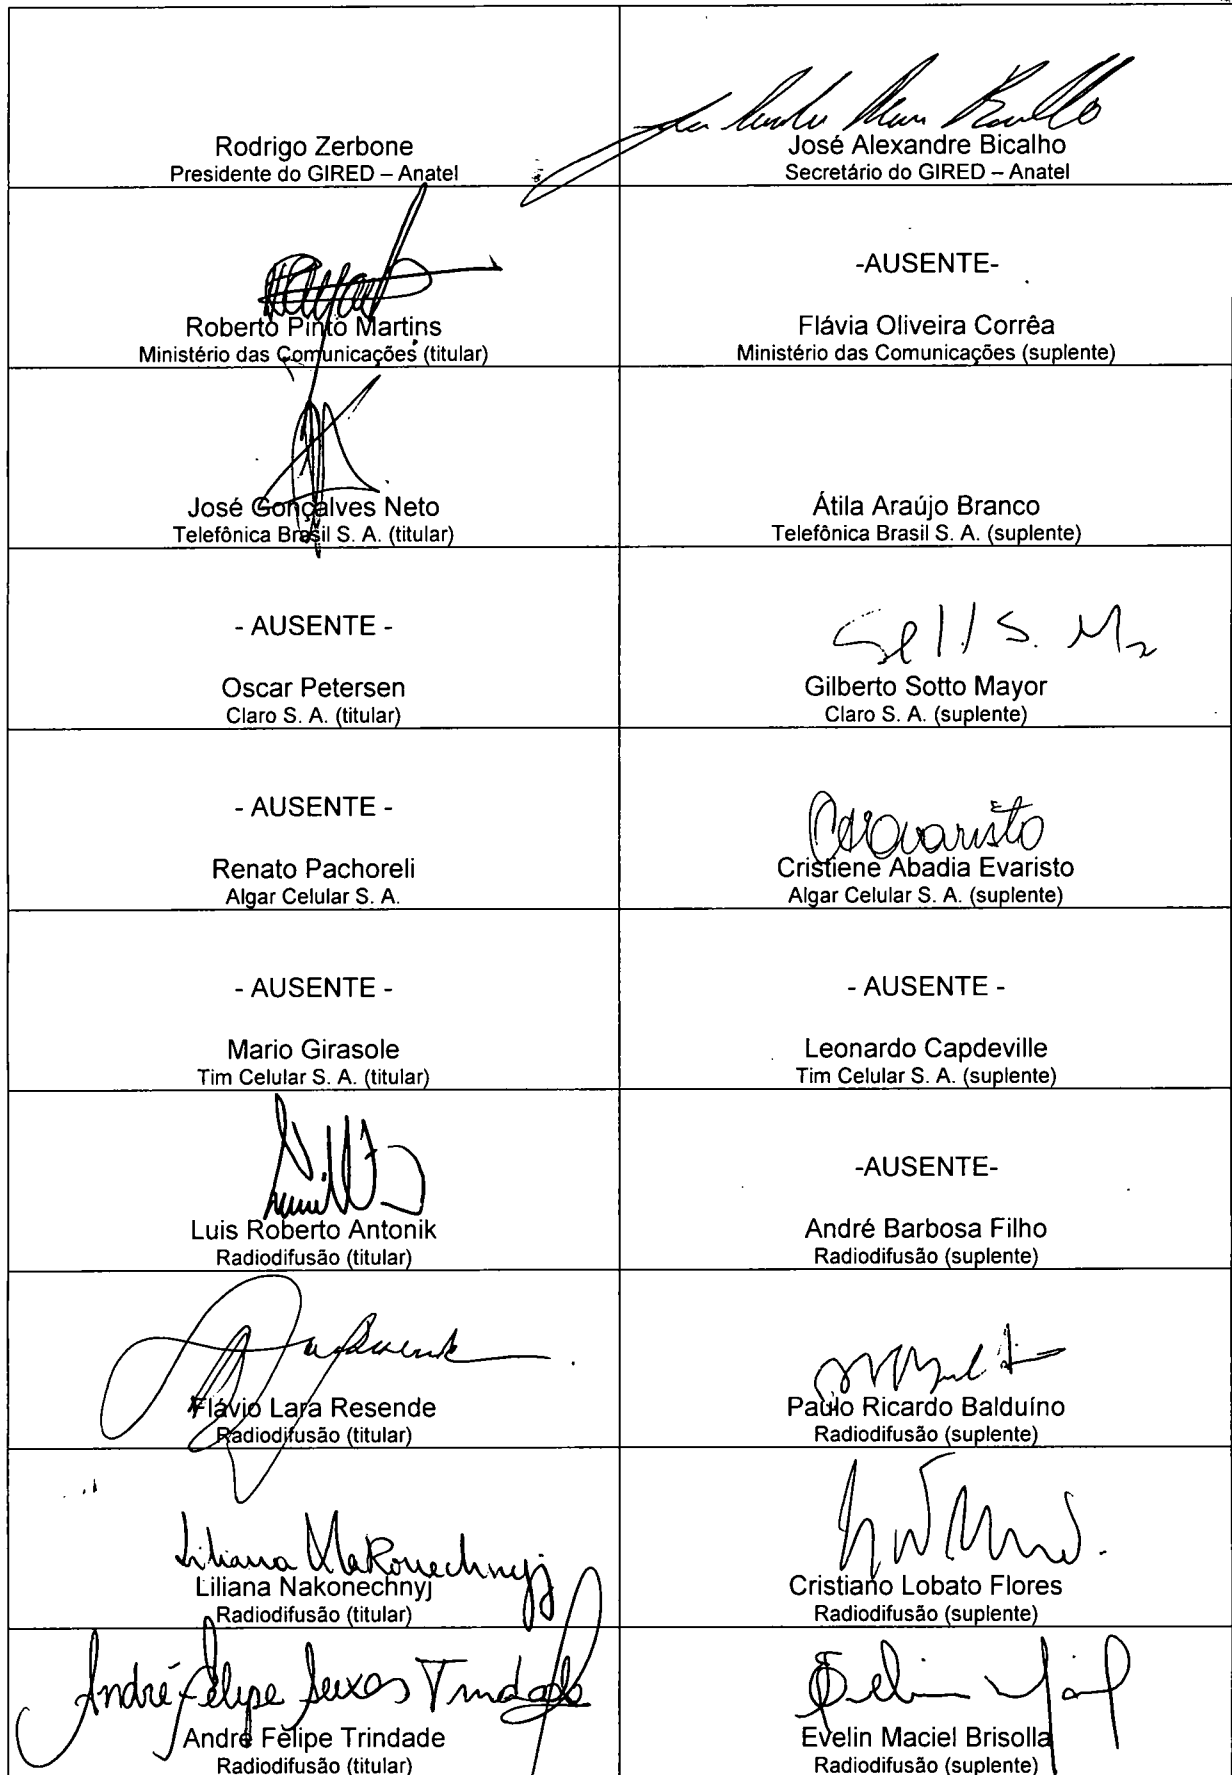 Rodrigo Zerbone
Presidente do GIRED – Anatel
José Alexandre Bicalho
Secretário do GIRED – Anatel
Roberto Pinto Martins
Ministério das Comunicações (titular)
-AUSENTE-
Flávia Oliveira Corrêa
Ministério das Comunicações (suplente)
José Gonçalves Neto
Telefônica Brasil S. A. (titular)
Átila Araújo Branco
Telefônica Brasil S. A. (suplente)
- AUSENTE -
Oscar Petersen
Claro S. A. (titular)
Gilberto Sotto Mayor
Claro S. A. (suplente)
- AUSENTE -
Renato Pachoreli
Algar Celular S. A.
Evaristo
Cristiene Abadia Evaristo
Algar Celular S. A. (suplente)
- AUSENTE -
Mario Girasole
Tim Celular S. A. (titular)
- AUSENTE -
Leonardo Capdeville
Tim Celular S. A. (suplente)
Luis Roberto Antonik
Radiodifusão (titular)
-AUSENTE-
André Barbosa Filho
Radiodifusão (suplente)
Flávio Lara Resende
Radiodifusão (titular)
Paulo Ricardo Balduíno
Radiodifusão (suplente)
Liliana Nakonechnyj
Liliana Nakonechnyj
Radiodifusão (titular)
Cristiano Lobato Flores
Radiodifusão (suplente)
André Felipe Seixas Trindade
André Felipe Trindade
Radiodifusão (titular)
Evelin Maciel Brisolla
Radiodifusão (suplente)